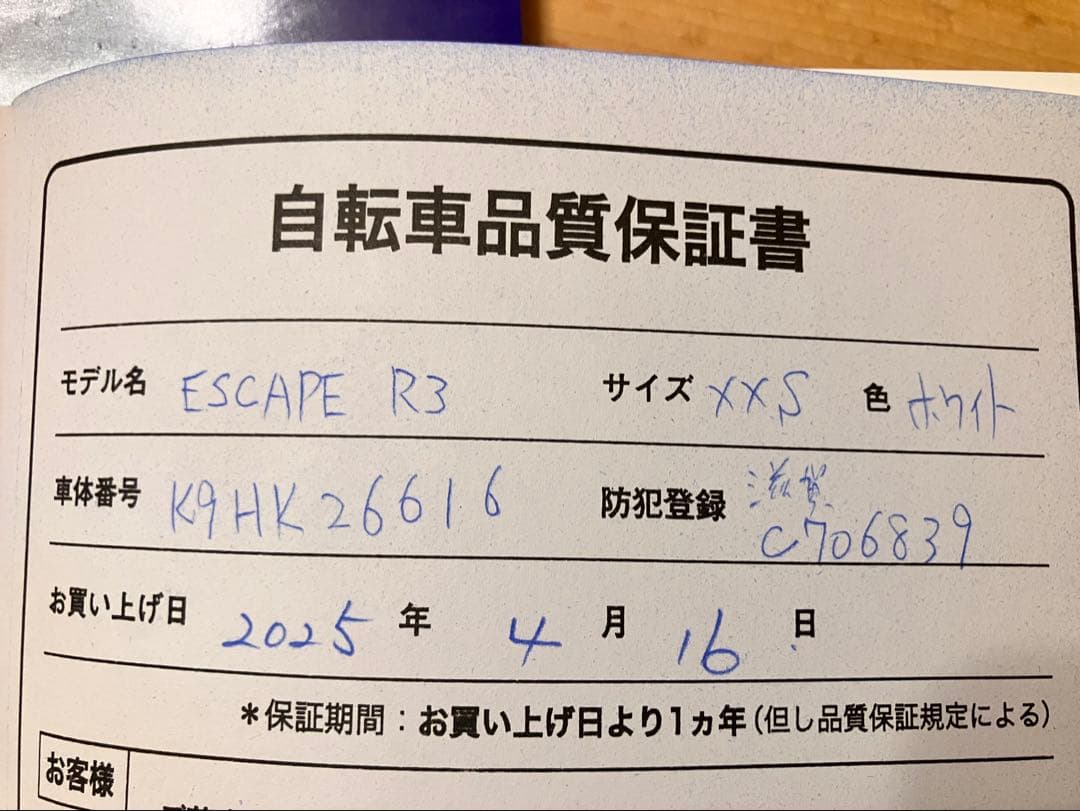 自転車品質保証書
モデル名 ESCAPE R3 サイズ XXS 色 ホワイト
車体番号 K9HK26616 防犯登録 滋賀 C706839
お買い上げ日 2025 年 4 月 16 日
*保証期間：お買い上げ日より1ヵ年（但し品質保証規定による）
お客様